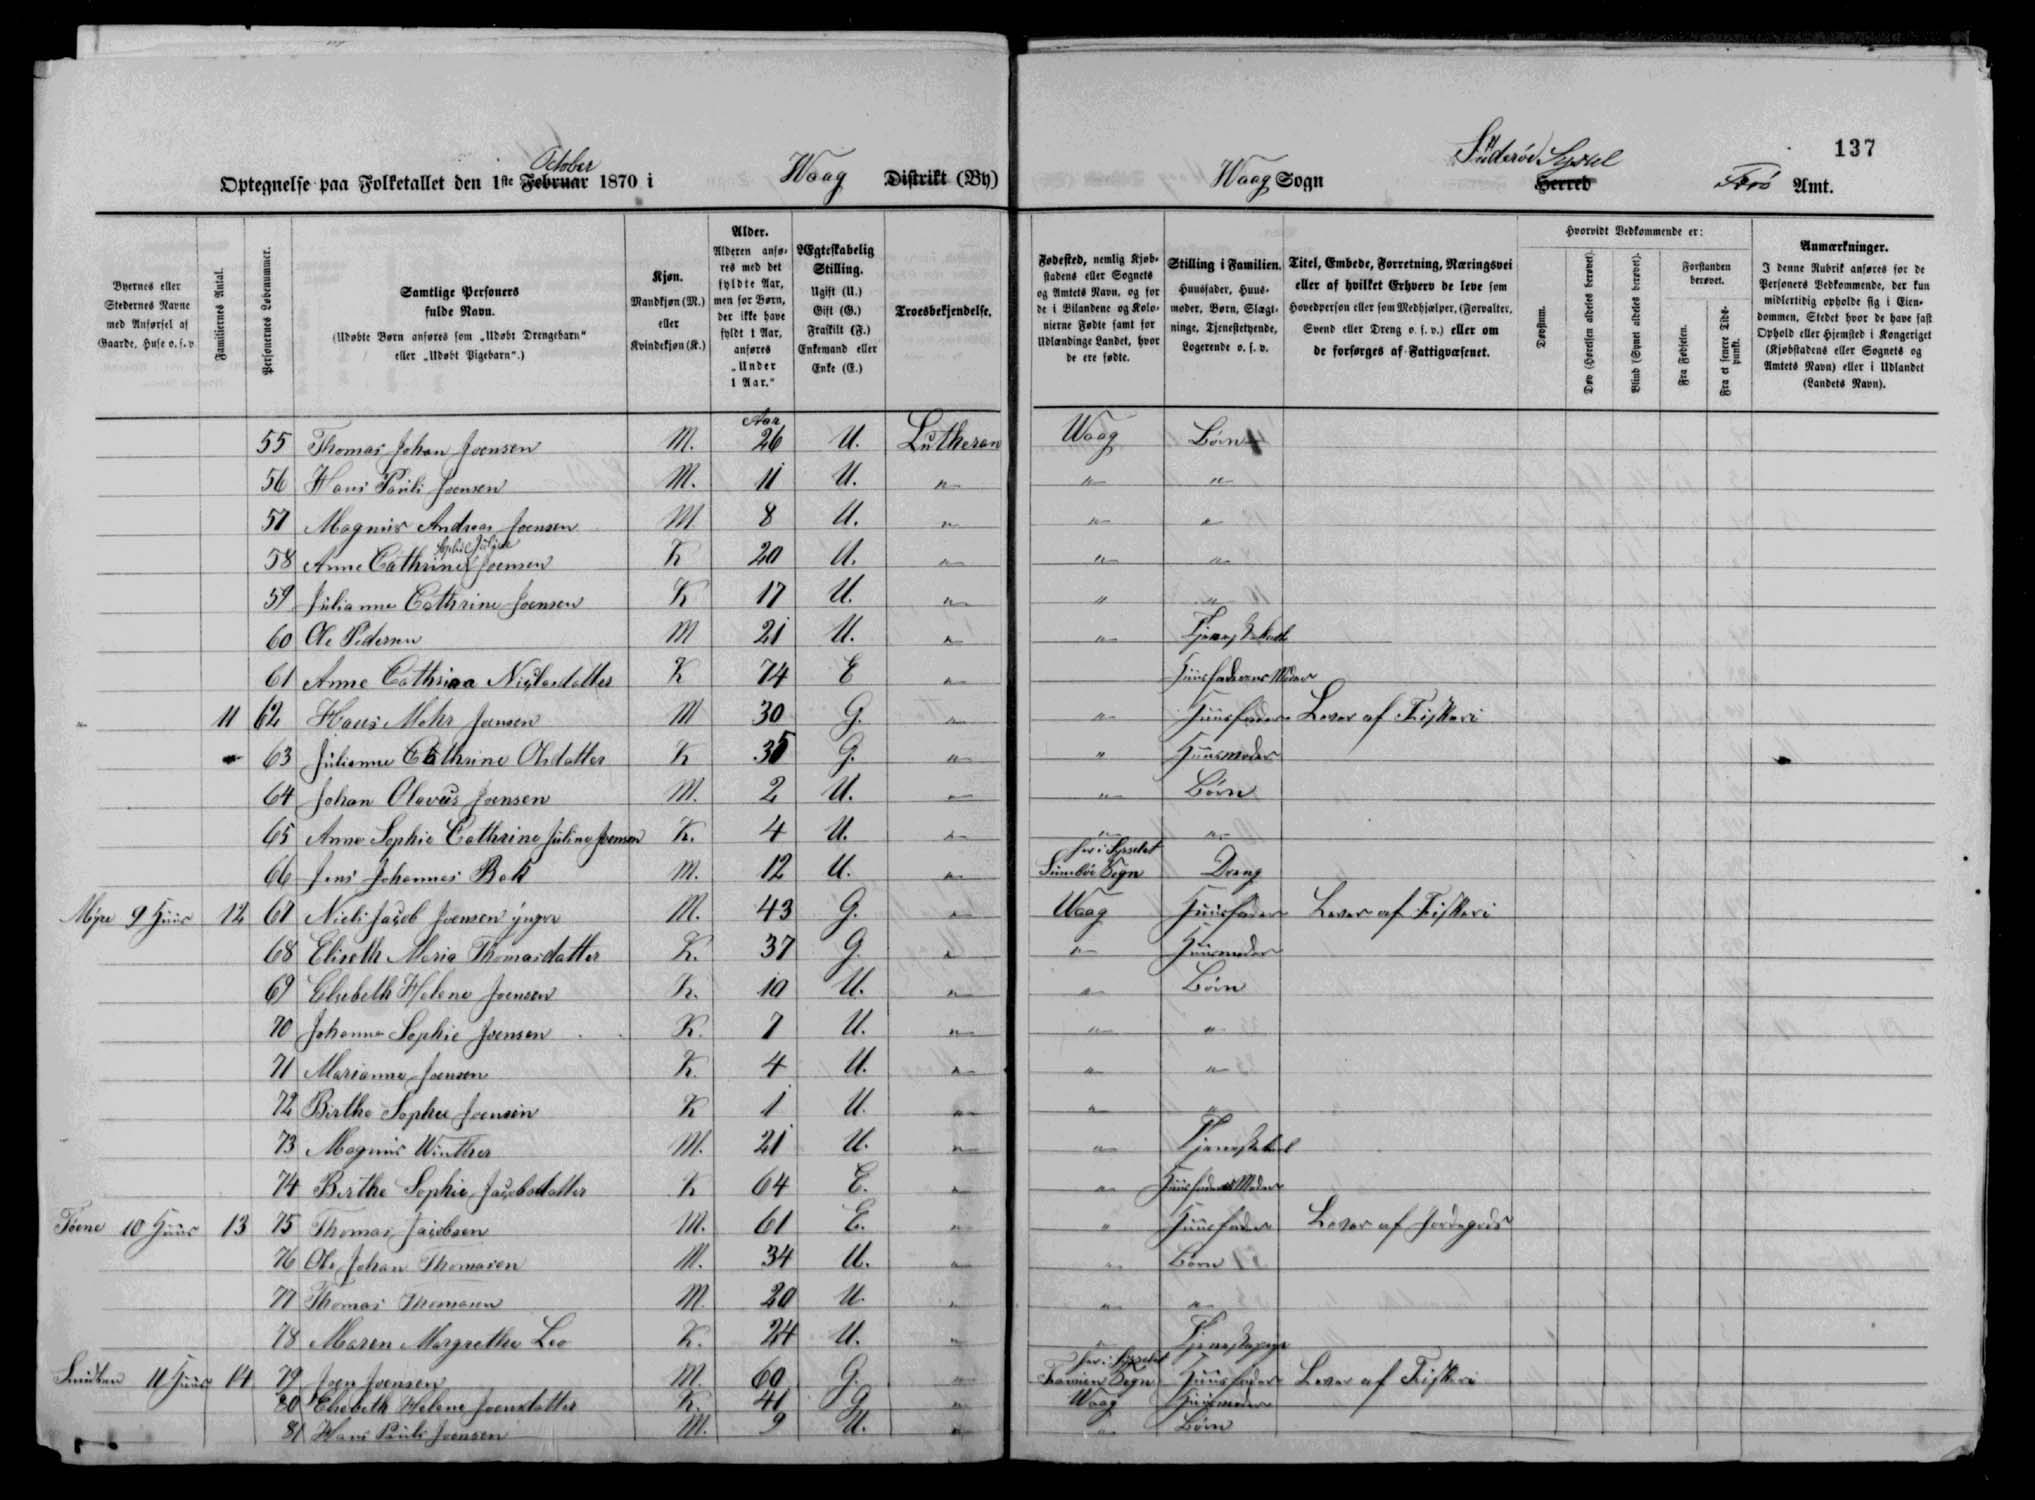 137
October Süderöe Syssel
Optegnelse paa Folketallet den 1ste Februar 1870 i Waag Distrikt (By) Waag Sogn Herred Færö Amt.
Byernes eller Stedernes Navne med Anførsel af Gaarde, Huse o. s. v.
Familiernes Antal.
Personernes Løbenummer.
Samtlige Personers fulde Navn.
(Udøbte Børn anføres som „Udøbt Drengebarn“ eller „Udøbt Pigebarn“.)
Kjøn.
Mandkjøn (M.) eller Kvindekjøn (K.)
Alder.
Alderen anføres med det fyldte Aar, men for Børn, der ikke have fyldt 1 Aar, anføres „Under 1 Aar.“
Ægteskabelig Stilling.
Ugift (U.) Gift (G.) Fraskilt (F.) Enkemand eller Enke (E.)
Troesbekjendelse.
Fødested, nemlig Kjøbstadens eller Sognets og Amtets Navn, og for de i Bilandene og Kolonierne Fødte samt for Udlændinge Landet, hvor de ere fødte.
Stilling i Familien.
Huusfader, Huusmoder, Børn, Slægtninge, Tjenestetyende, Logerende o. s. v.
Titel, Embede, Forretning, Næringsvei eller af hvilket Erhverv de leve som Hovedperson eller som Medhjælper, (Forvalter, Svend eller Dreng o. s. v.) eller om de forsørges af Fattigvæsenet.
Hvorvidt Vedkommende er:
Døvstum.
Døv (Hørelsen aldeles berøvet).
Blind (Synet aldeles berøvet).
Forstanden berøvet.
Fra Fødselen.
Fra et senere Tidspunkt.
Anmærkninger.
I denne Rubrik anføres for de Personers Vedkommende, der kun midlertidig opholde sig i Eiendommen, Stedet hvor de have fast Ophold eller Hjemsted i Kongeriget (Kjøbstadens eller Sognets og Amtets Navn) eller i Udlandet (Landets Navn).
Aar
55 Thomas Johan Joensen M. 26 U. Lutheran Waag Börn
56 Hans Pauli Joensen M. 11 U. " " "
57 Magnus Andreas Joensen M 8 U. " " "
Sophie Juline
58 Anne Cathrine Joensen K 20 U. " " "
59 Julianne Cathrine Joensen K 17 U. " " "
60 Ole Pedersen M 21 U. " " Tjenestekarl
61 Anne Cathrina Niclasdatter K 74 E " Huusfaderens Moder
11 62 Hans Mohr Joensen M 30 G. " " Huusfader Lever af Fiskeri
" 63 Julianne Cathrine Olsdatter K 35 G. " " Huusmoder
64 Johan Olavus Joensen M. 2 U. " " Börn
65 Anne Sophie Cathrine Juline Joensen K. 4 U. " " "
her i Sysselet
66 Jens Johannes Bek M. 12 U. " Sumböe Sogn Dreng
Myre 9 Huus 12 67 Niels Jacob Joensen yngre M. 43 G. " Waag Huusfader Lever af Fiskeri
68 Eliseth Maria Thomasdatter K. 37 G. " " Huusmoder
69 Elsebeth Helene Joensen K. 10 U. " " Börn
70 Johanne Sophie Joensen K. 7 U. " " "
71 Marianne Joensen K. 4 U. " " "
72 Birthe Sophie Joensen K 1 U. " " "
73 Magnus Winther M. 21 U. " " Tjenestekarl
74 Birthe Sophie Jacobsdatter K 64 E. " " Huusfaderens Moder
10 Huus 13 75 Thomas Jacobsen M. 61 E. " " Huusfader Lever af Jordegods
76 Ole Johan Thomasen M. 34 U. " " Börn
77 Thomas Thomasen M. 20 U. " " "
78 Maren Margrethe Leo K. 24 U. " " Tjenestepige
her i Sysselet
11 Huus 14 79 Joen Joensen M. 60 G. " Sogn Huusfader Lever af Fiskeri
80 Elsebeth Helene Joensdatter K. 41 G " Waag Huusmoder
81 Hans Pauli Joensen M. 9 U. " " Börn